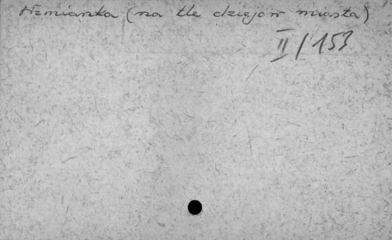 Wzmianka (na tle dziejów miasta)
II/153